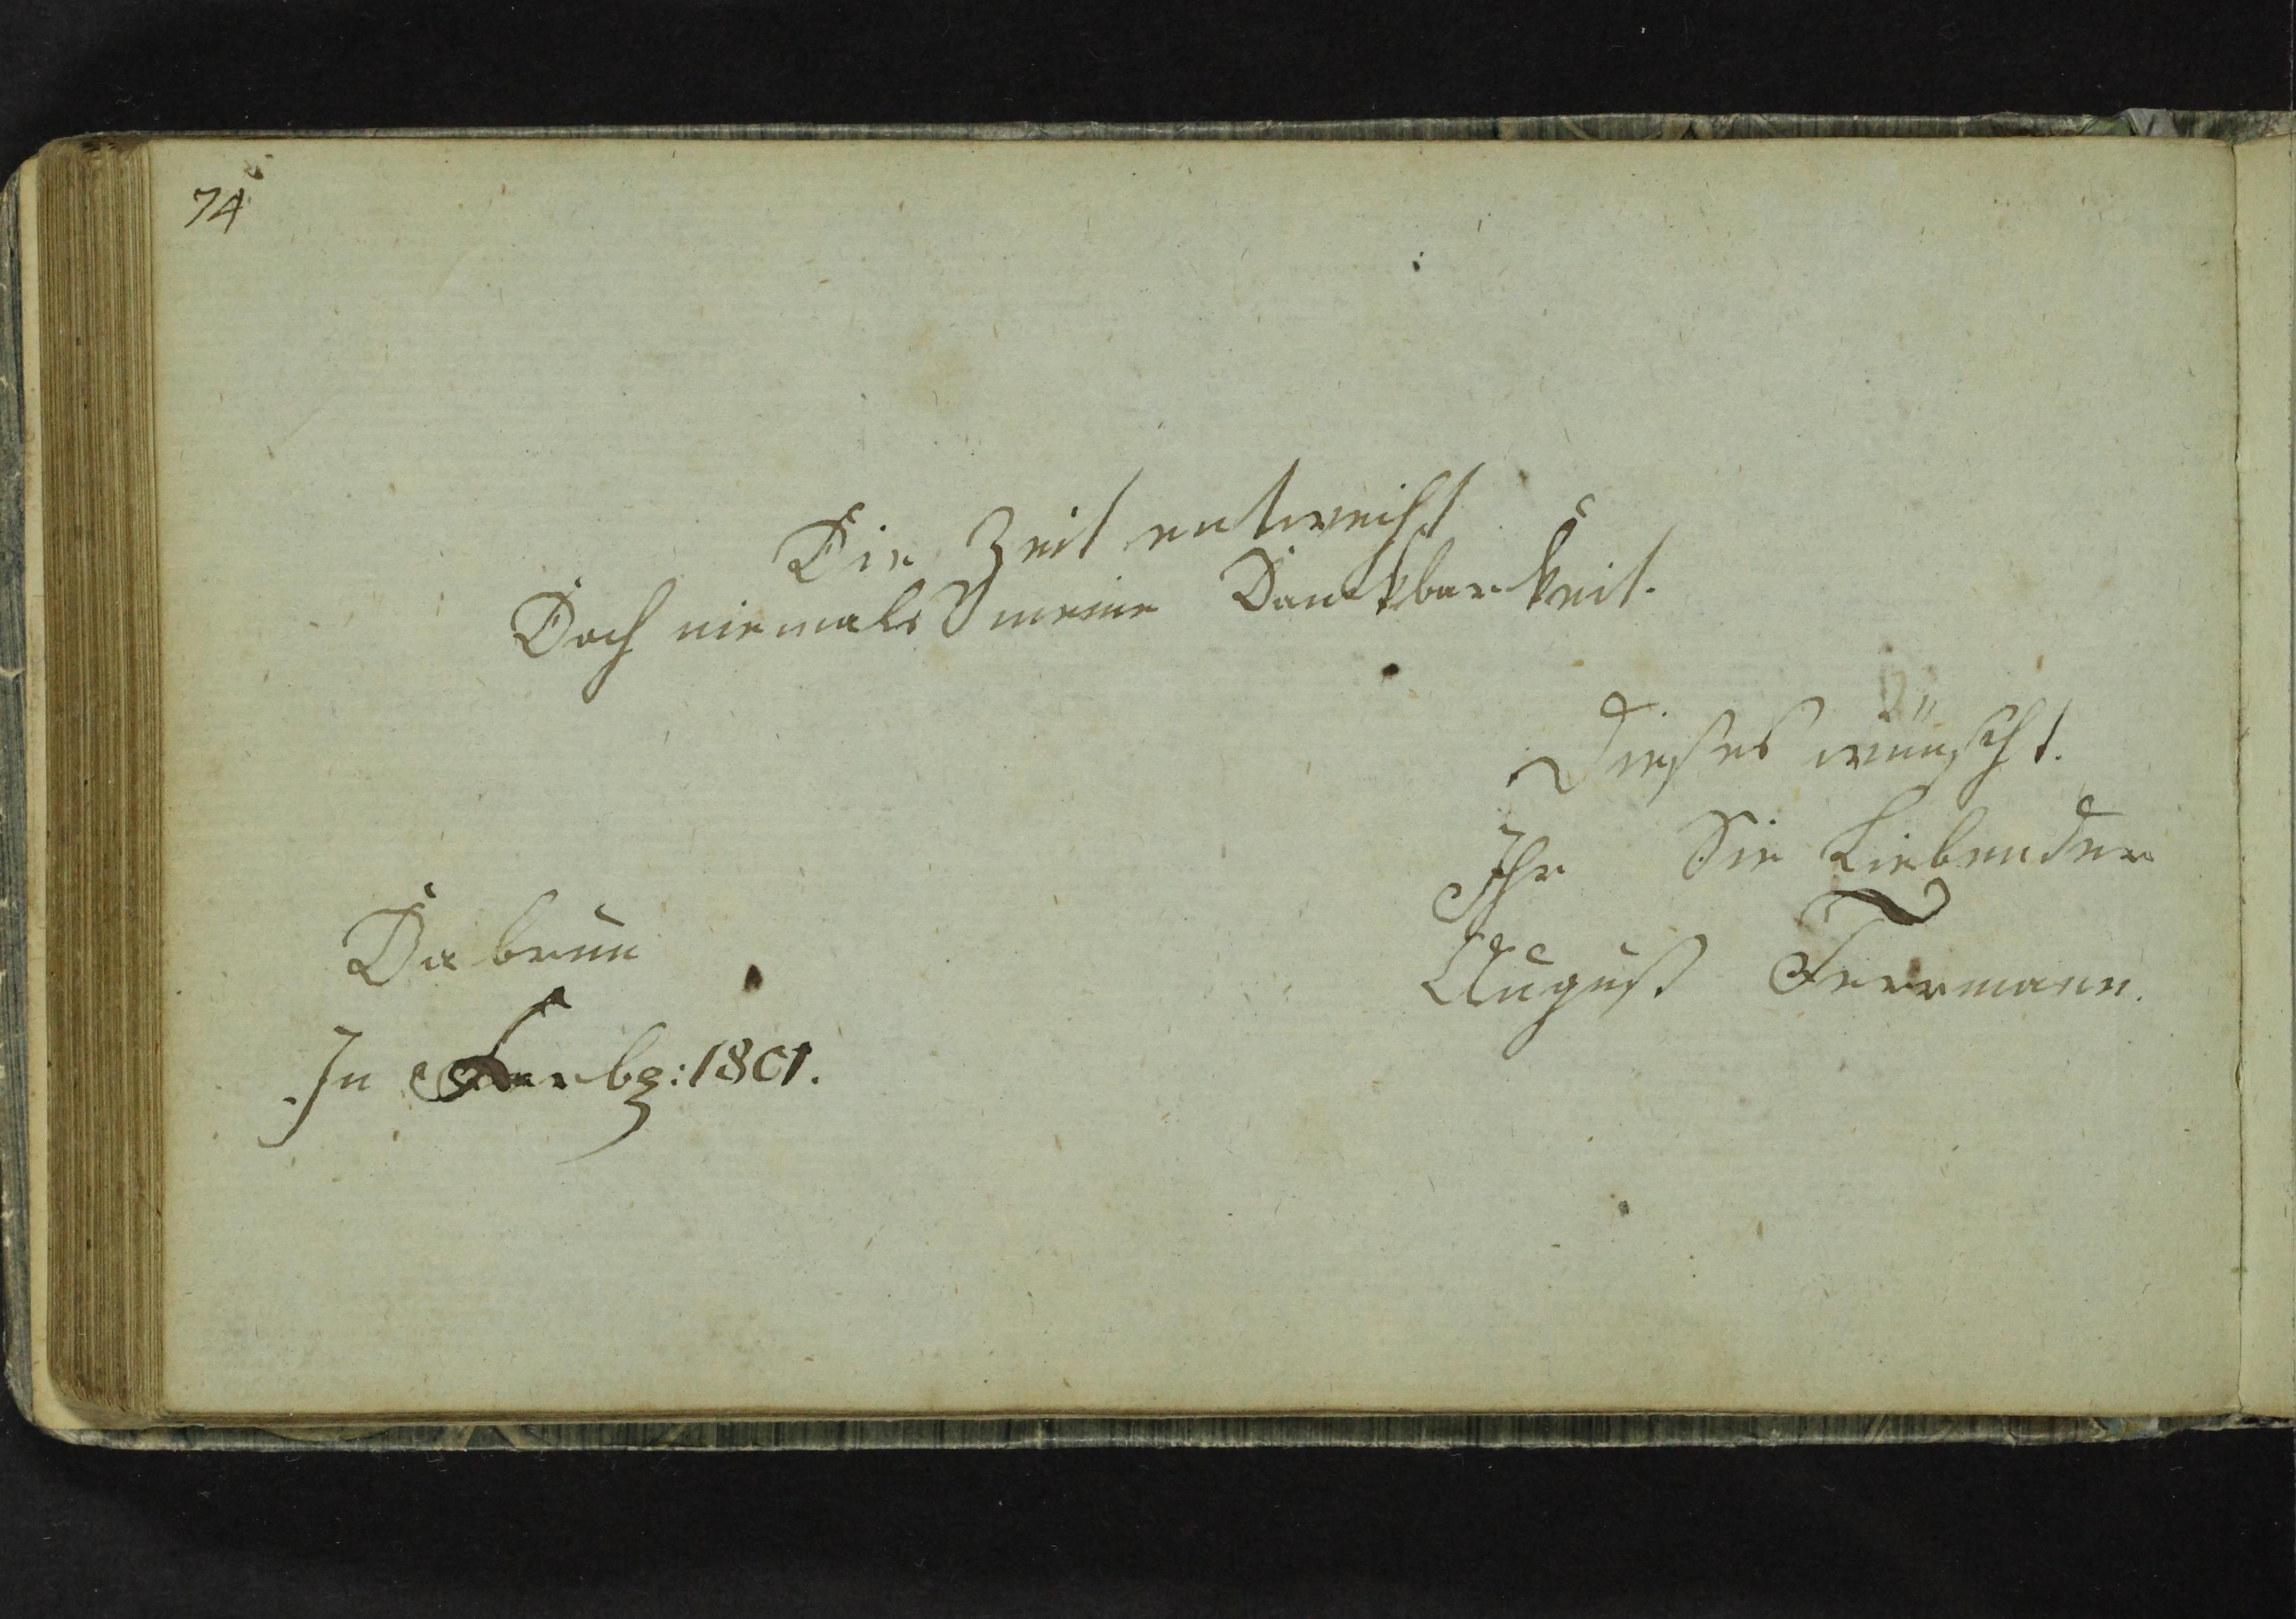 74
Die Zeit entweicht
Doch niemals meine Danckbarkeit.
Dieses wünscht.
Ihr Sie Liebender
August Feermann.
Dabrun
In
1801.